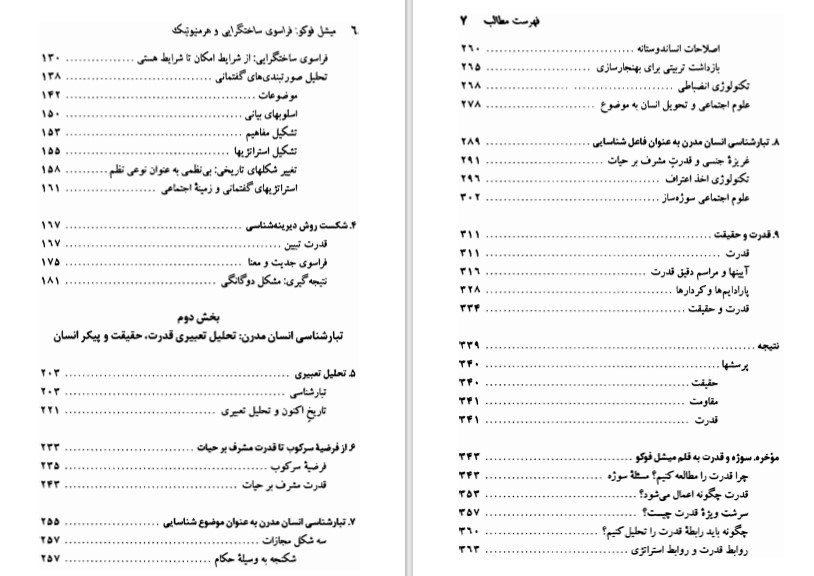 ۶ میشل فوکو: فراسوی ساختگرایی و هرمنیوتیک
فراسوی ساختگرایی: از شرایط امکان تا شرایط هستی ........ ۱۳۰
تحلیل صورتبندی‌های گفتمانی ........ ۱۳۸
موضوعات ........ ۱۴۲
اسلوبهای بیانی ........ ۱۵۰
تشکیل مفاهیم ........ ۱۵۳
تشکیل استراتژیها ........ ۱۵۵
تغییر شکلهای تاریخی: بی‌نظمی به عنوان نوعی نظم ........ ۱۵۸
استراتژیهای گفتمانی و زمینهٔ اجتماعی ........ ۱۶۱
۴. شکست روش دیرینه‌شناسی ........ ۱۶۷
قدرت تبیین ........ ۱۶۷
فراسوی جدیت و معنا ........ ۱۷۵
نتیجه‌گیری: مشکل دوگانگی ........ ۱۸۱
بخش دوم
تبارشناسی انسان مدرن: تحلیل تعبیری قدرت، حقیقت و پیکر انسان
۵. تحلیل تعبیری ........ ۲۰۳
تبارشناسی ........ ۲۰۳
تاریخ اکنون و تحلیل تعبیری ........ ۲۲۱
۶. از فرضیهٔ سرکوب تا قدرت مشرف بر حیات ........ ۲۳۳
فرضیهٔ سرکوب ........ ۲۳۵
قدرت مشرف بر حیات ........ ۲۴۳
۷. تبارشناسی انسان مدرن به عنوان موضوع شناسایی ........ ۲۵۵
سه شکل مجازات ........ ۲۵۷
شکنجه به وسیلهٔ حکام ........ ۲۵۷
فهرست مطالب ۷
اصلاحات انساندوستانه ........ ۲۶۰
بازداشت تربیتی برای بهنجارسازی ........ ۲۶۵
تکنولوژی انضباطی ........ ۲۶۸
علوم اجتماعی و تحویل انسان به موضوع ........ ۲۷۸
۸. تبارشناسی انسان مدرن به عنوان فاعل شناسایی ........ ۲۸۹
غریزهٔ جنسی و قدرتِ مشرف بر حیات ........ ۲۹۱
تکنولوژی اخذ اعتراف ........ ۲۹۶
علوم اجتماعی سوژه‌ساز ........ ۳۰۲
۹. قدرت و حقیقت ........ ۳۱۱
قدرت ........ ۳۱۱
آیینها و مراسم دقیق قدرت ........ ۳۱۶
پارادایم‌ها و کردارها ........ ۳۲۸
قدرت و حقیقت ........ ۳۳۴
نتیجه ........ ۳۳۹
پرسشها ........ ۳۴۰
حقیقت ........ ۳۴۰
مقاومت ........ ۳۴۱
قدرت ........ ۳۴۱
مؤخره. سوژه و قدرت به قلم میشل فوکو ........ ۳۴۳
چرا قدرت را مطالعه کنیم؟ مسئلهٔ سوژه ........ ۳۴۳
قدرت چگونه اعمال می‌شود؟ ........ ۳۵۳
سرشت ویژهٔ قدرت چیست؟ ........ ۳۵۷
چگونه باید رابطهٔ قدرت را تحلیل کنیم؟ ........ ۳۶۰
روابط قدرت و روابط استراتژی ........ ۳۶۳